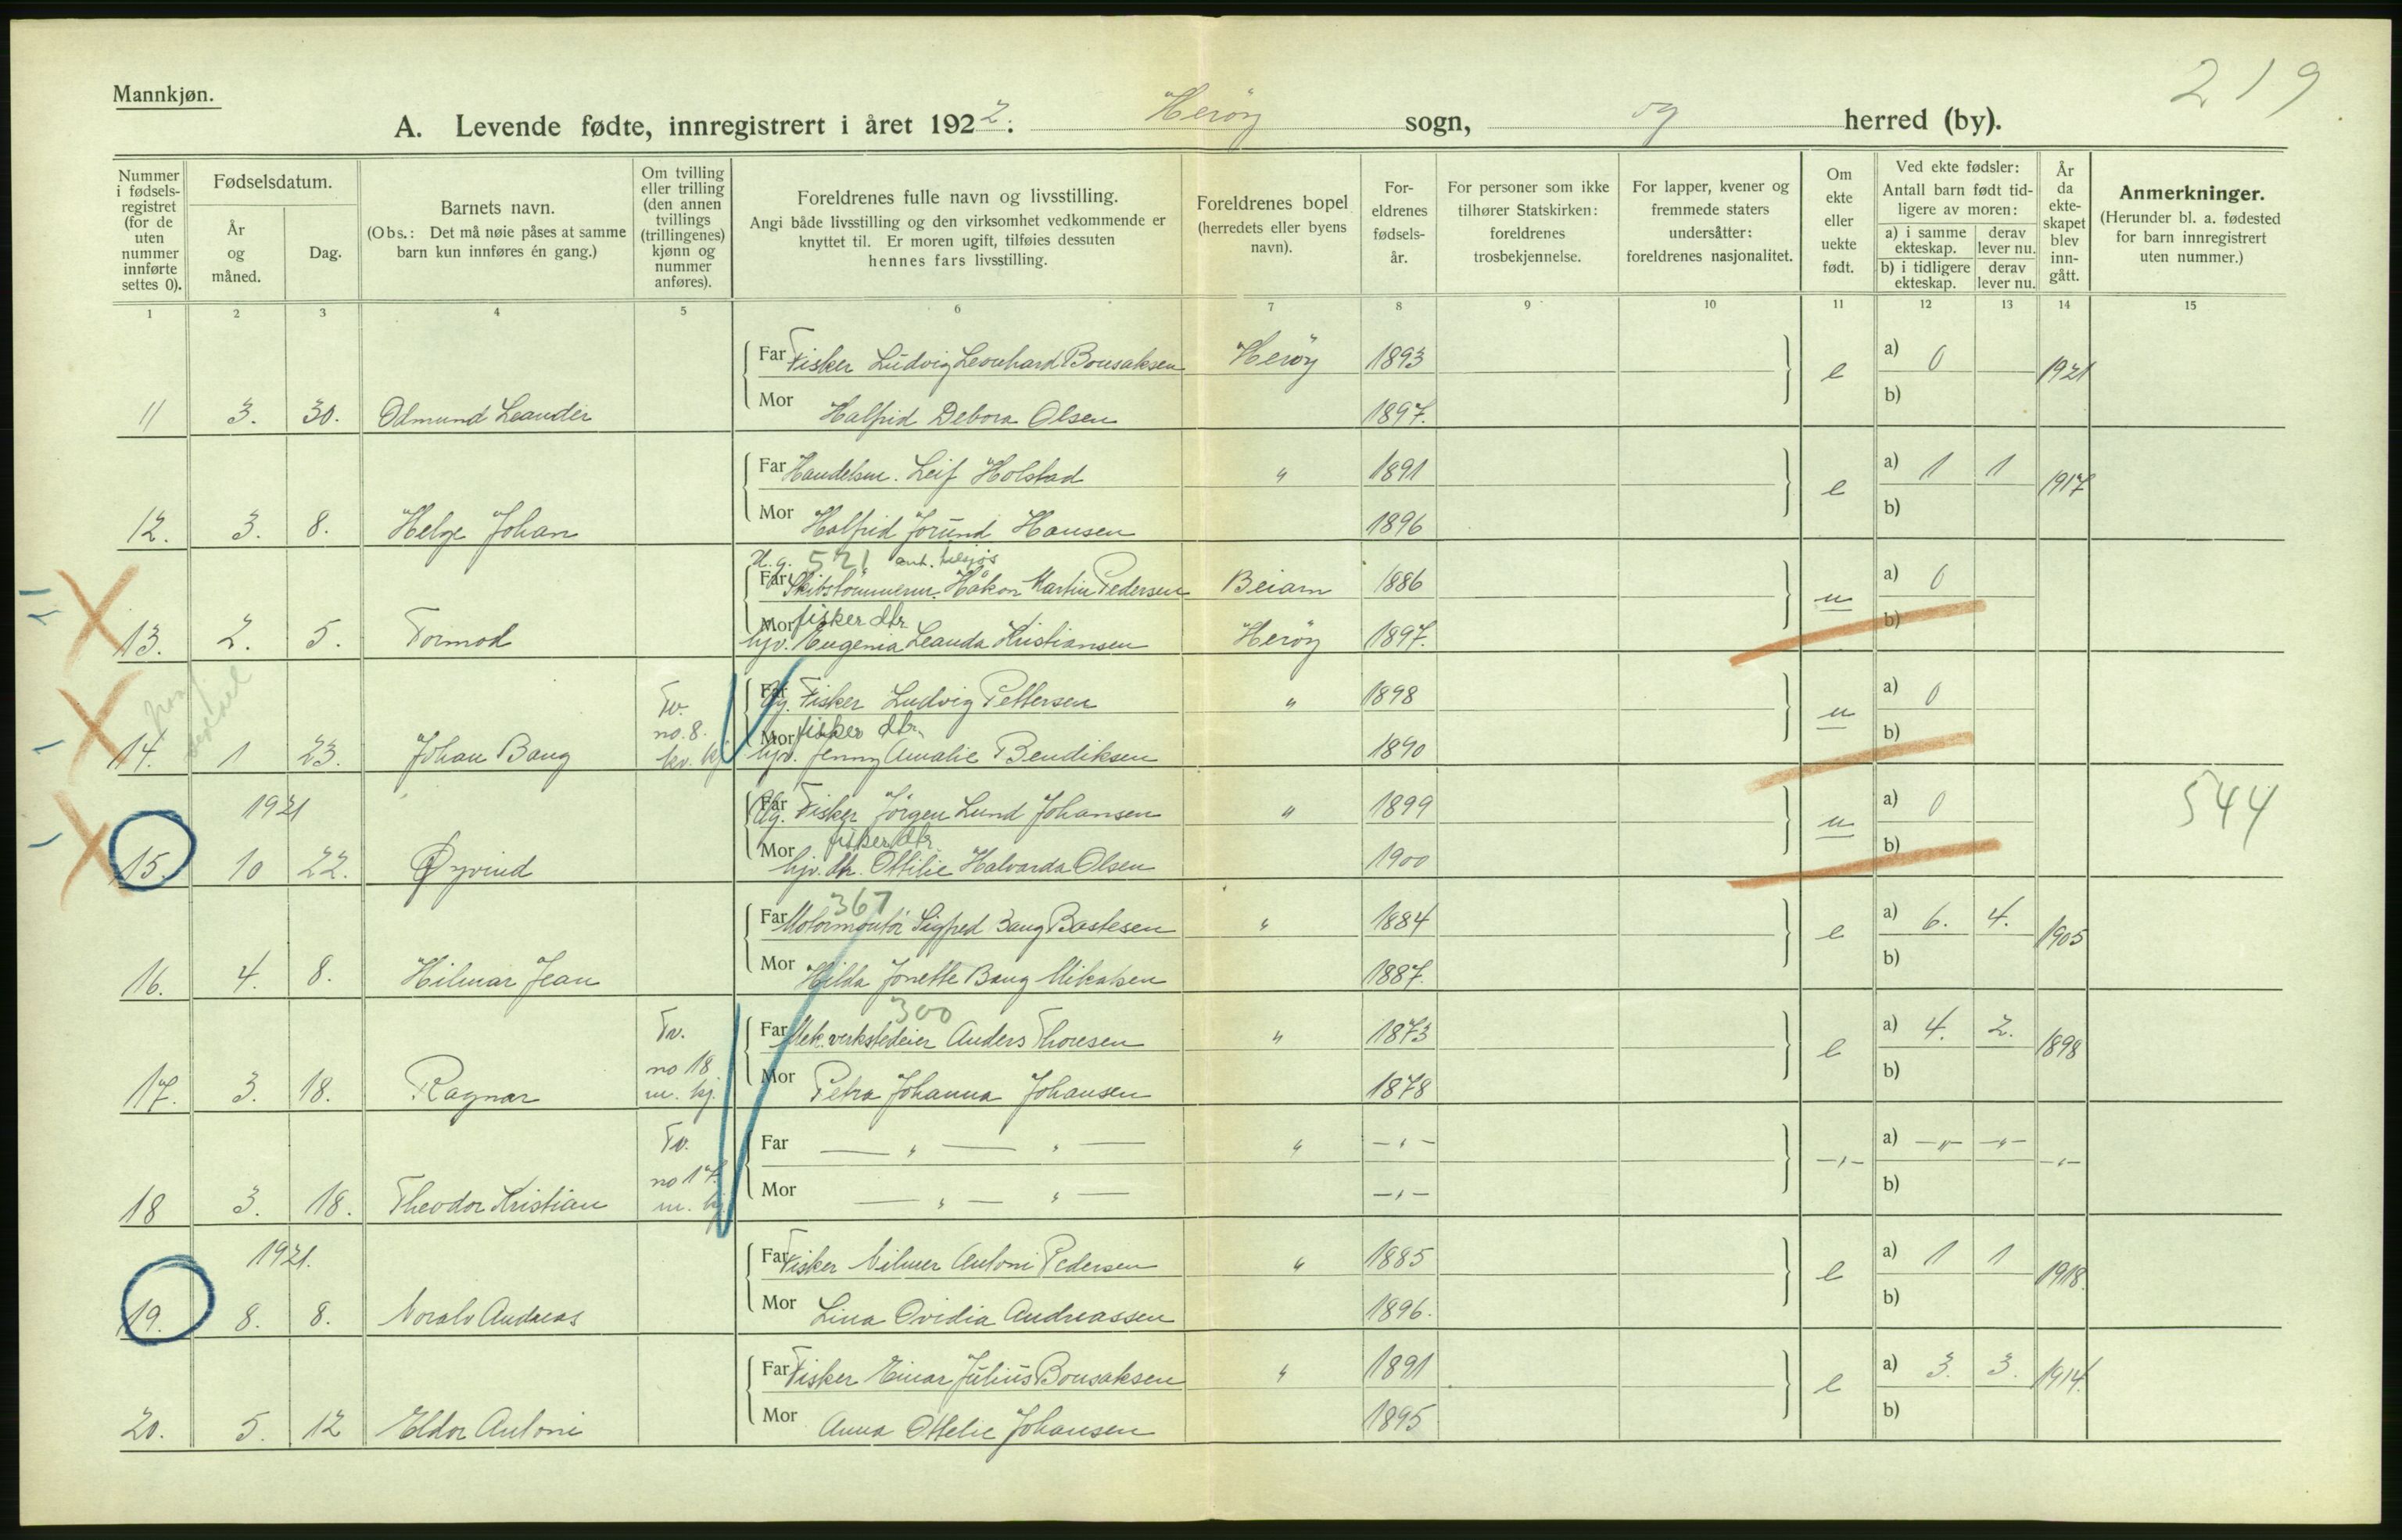 219
Mannkjøn.
A. Levende fødte, innregistrert i året 1922. Herøy sogn, og herred (by).
Nummer i fødsels-registret (for de uten nummer innførte settes 0).
Fødselsdatum.
År og måned.
Dag.
Barnets navn.
(Obs.: Det må nøie påses at samme barn kun innføres én gang.)
Om tvilling eller trilling (den annen tvillings (trillingenes) kjønn og nummer anføres).
Foreldrenes fulle navn og livsstilling.
Angi både livsstilling og den virksomhet vedkommende er knyttet til. Er moren ugift, tilføies dessuten hennes fars livsstilling.
Foreldrenes bopel (herredets eller byens navn).
For-eldrenes fødsels-år.
For personer som ikke tilhører Statskirken: foreldrenes trosbekjennelse.
For lapper, kvener og fremmede staters undersåtter: foreldrenes nasjonalitet.
Om ekte eller uekte født.
Ved ekte fødsler:
Antall barn født tid-ligere av moren:
a) i samme ekteskap. derav lever nu.
b) i tidligere ekteskap. derav lever nu.
År da ekte-skapet blev inn-gått.
Anmerkninger.
(Herunder bl. a. fødested for barn innregistrert uten nummer.)
1 2 3 4 5 6 7 8 9 10 11 12 13 14 15
Far Fisker Ludvig Leonhard Bonsaksen Herøy 1893 e a) 0 1921
11 3. 30. Odmund Leander Mor Halfrid Debora Olsen 1897. b)
Far Handelsm. Leif Holstad " 1891 e a) 1 1 1917
12. 3. 8. Helge Johan Mor Halfrid Jorund Hansen 1896 b)
521
Far Skibstømmerm. Håkon Martin Pedersen Beiarn 1886 u a) 0
fisker dtr.
13. 2. 5. Tormod Mor hjv. Eugenia Leanda Kristiansen Herøy 1897. b)
Tv. Far Ug. Fisker Ludvig Pettersen " 1898 u a) 0
no. 8. fisker dtr.
14. 1 23. Johan Bang kv. kj Mor hjv. Jenny Amalie Bendiksen 1890 b)
1921 Far Ug. Fisker Jørgen Lund Johansen " 1899 u a) 0 544
fisker dtr.
15. 10 22. Øyvind Mor hjv. dtr. Ottilie Halvarda Olsen 1900 b)
367
Far Motormontør Sigfred Bang Bastesen " 1884 e a) 6. 4. 1905
16. 4. 8. Hilmar Jean Mor Hilda Jonette Bang Mikalsen 1887. b)
300
Tv. Far Mek. verkstedeier Anders Thoresen " 1873 e a) 4. 2. 1898
no 18
17. 3. 18. Ragnar m. kj. Mor Petra Johanna Johansen 1878 b)
Tv. Far — " — " — " — " — — " — a) — " — — " — — " —
no 17.
18 3. 18. Theodor Kristian m. kj Mor — " — " — — " — b)
1921. Far Fisker Hilmer Antoni Pedersen " 1885 e a) 1 1 1918
19. 8. 8. Noralv Andreas Mor Lina Ovidia Andreassen 1896. b)
Far Fisker Einar Julius Bonsaksen " 1891 e a) 3. 3. 1914.
20. 5. 12 Eldor Antoni Mor Anna Ottelie Johansen 1895 b)